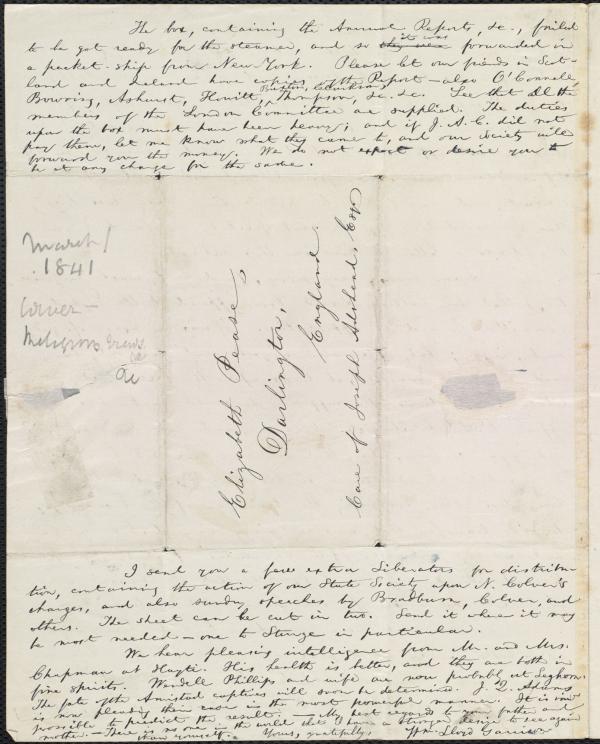 The box, containing the Annual Reports, &c., failed
to be got ready for the steamer, and so they were it was forwarded in
a packet-ship from New York. Please let our friends in Scot-
land and Ireland have copies of the Report—also O'Connell,
Bowring, Ashurst, Howitt, Buxton, Clarkson, Thompson, &c. &c. See that all the
members of the London Committee are supplied. The duties
upon the box must have been heavy; and if J. A. C. did not
pay them, let me know what they came to, and our Society will
forward you the money. We do not expect or desire you to
be at any charge for the same.
March 1
1841
Colver—
Elizabeth Pease,
Darlington,
England.
Care of Joseph Adshead, Esq.
I send you a few extra Liberators for distribu-
tion, containing the action of our State Society upon N. Colver's
charges, and also sundry speeches by Bradburn, Colver, and
others. The sheet can be cut in two. Send it where it may
be most needed—one to Sturge in particular.
We hear pleasing intelligence from Mr. and Mrs.
Chapman at Hayti. His health is better, and they are both in
fine spirits. Wendell Phillips and wife are now probably at Leghorn.
The fate of the Amistad captives will soon be determined. J. Q. Adams
is now pleading their case in the most powerful manner. It is im-
possible to predict the result.—My best regards to your father and
mother.—There is no one in the world that I have a stronger desire to see again
than yourself. Yours, gratefully, Wm. Lloyd Garrison